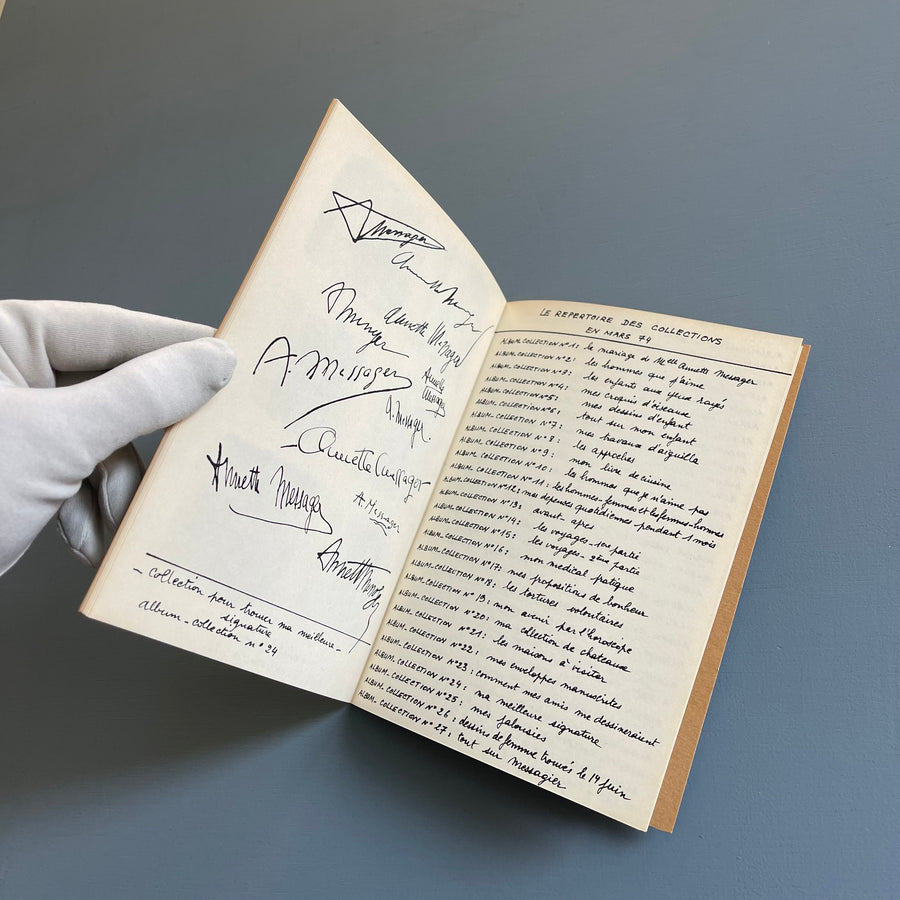 A Messager
Annette Messager
A Messager
Annette Messager
A. Messager
Annette
Messager
A. Messager
Annette Messager
Annette Messager
A. Messager
Annette Messager
- Collection pour trouver ma meilleure -
signature
album - collection n° 24
LE REPERTOIRE DES COLLECTIONS
EN MARS 74
ALBUM-COLLECTION N°1: le mariage de Melle Annette Messager
ALBUM-COLLECTION N°2: les hommes que j'aime
ALBUM-COLLECTION N°3: les enfants aux yeux rayés
ALBUM-COLLECTION N°4: mes croquis d'oiseaux
ALBUM-COLLECTION N°5: mes dessins d'enfant
ALBUM-COLLECTION N°6: tout sur mon enfant
ALBUM-COLLECTION N°7: mes travaux d'aiguille
ALBUM-COLLECTION N°8: les approches
ALBUM-COLLECTION N°9: mon livre de cuisine
ALBUM-COLLECTION N°10: les hommes que je n'aime pas
ALBUM-COLLECTION N°11: les hommes-femmes et les femmes-hommes
ALBUM-COLLECTION N°12: mes depenses quotidiennes pendant 1 mois
ALBUM-COLLECTION N°13: avant - apres
ALBUM-COLLECTION N°14: les voyages - 1ère partie
ALBUM-COLLECTION N°15: les voyages - 2è partie
ALBUM-COLLECTION N°16: mon medical pratique
ALBUM-COLLECTION N°17: mes propositions de bonheur
ALBUM-COLLECTION N°18: les tortures volontaires
ALBUM-COLLECTION N°19: mon avenir par l'horoscope
ALBUM-COLLECTION N°20: ma collection de chateaux
ALBUM-COLLECTION N°21: les maisons à visiter
ALBUM-COLLECTION N°22: mes enveloppes manuscrites
ALBUM-COLLECTION N°23: comment mes amis me dessineraient
ALBUM-COLLECTION N°24: ma meilleure signature
ALBUM-COLLECTION N°25: mes jalousies
ALBUM-COLLECTION N°26: dessins de femme trouvés le 14 juin
ALBUM-COLLECTION N°27: tout sur Messagier